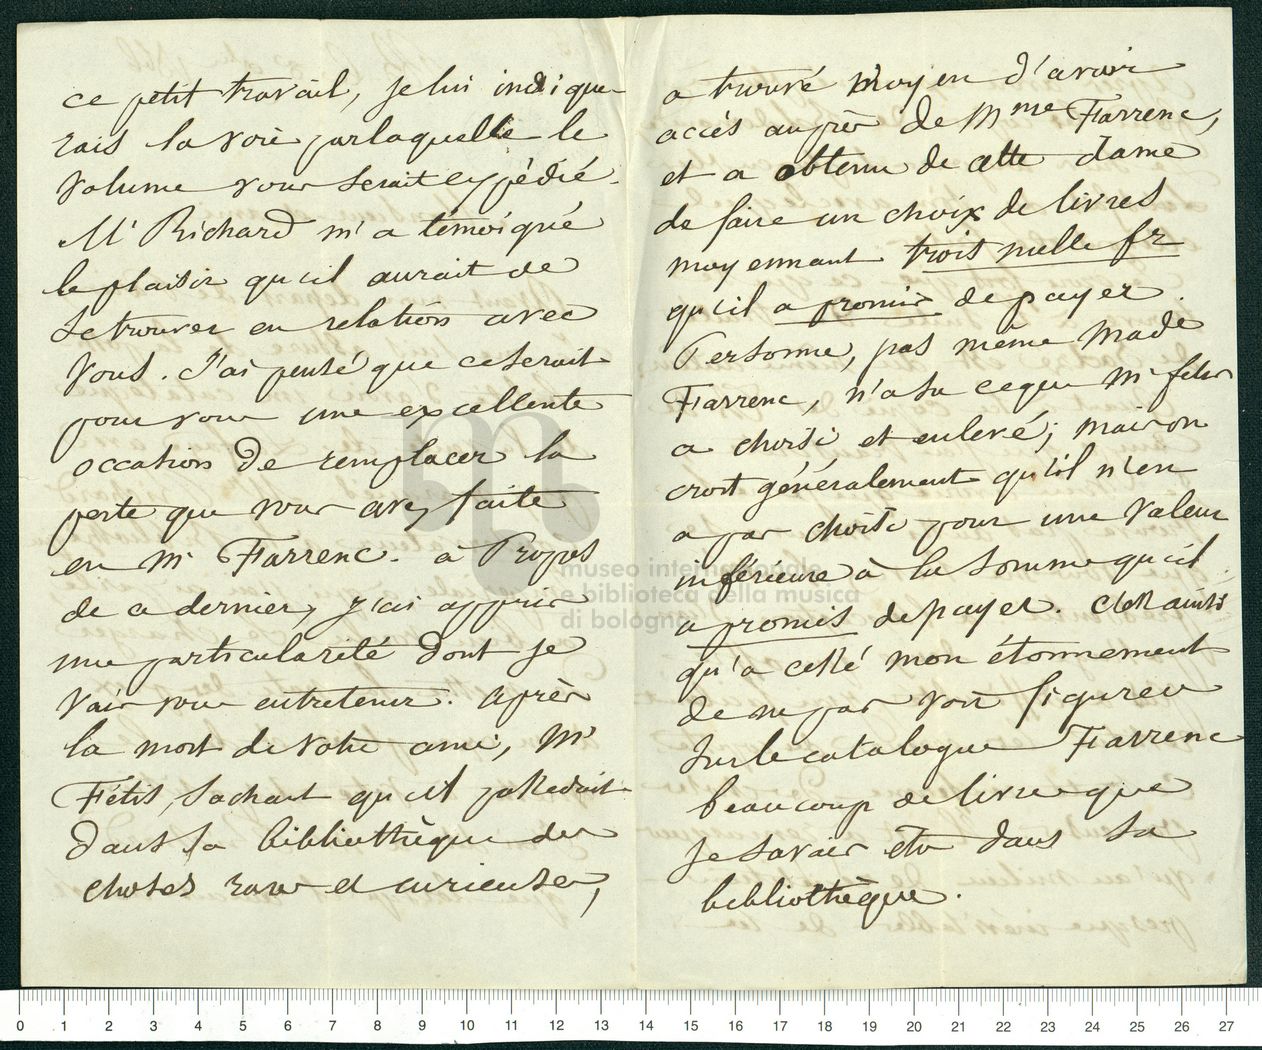 ce petit travail, je lui indique-
rais la voie par laquelle le
volume vous serait expédié.
Mr Richard m'a témoigné
le plaisir qu'il aurait de
se trouver en relation avec
vous. J'ai pensé que ce serait
pour vous une excellente
occasion de remplacer la
perte que vous avez faite
en Mr Farrenc. à Propos
de ce dernier, j'ai appris
une particularité dont je
vais vous entretenir. après
la mort de votre ami, Mr
Fétis, sachant qu'il possedait
dans sa bibliothèque des
choses rares et curieuses,
a trouvé moyen d'avoir
accès auprès de Mme Farrenc,
et a obtenu de cette dame
de faire un choix de livres
moyennant trois mille fr
qu'il a promis de payer.
Personne, pas même Made
Farrenc, n'a su ce que Mr fetis
a choisi et enlevé; mais on
croit généralement qu'il n'en
a pas choisi pour une valeur
inférieure à la somme qu'il
a promis de payer. C'est ainsi
qu'a cessé mon étonnement
de ne pas voir figurer
sur le catalogue Farrenc
beaucoup de livres que
je savais être dans sa
bibliothèque.
museo internazionale
e biblioteca della musica
di bologna
0 1 2 3 4 5 6 7 8 9 10 11 12 13 14 15 16 17 18 19 20 21 22 23 24 25 26 27